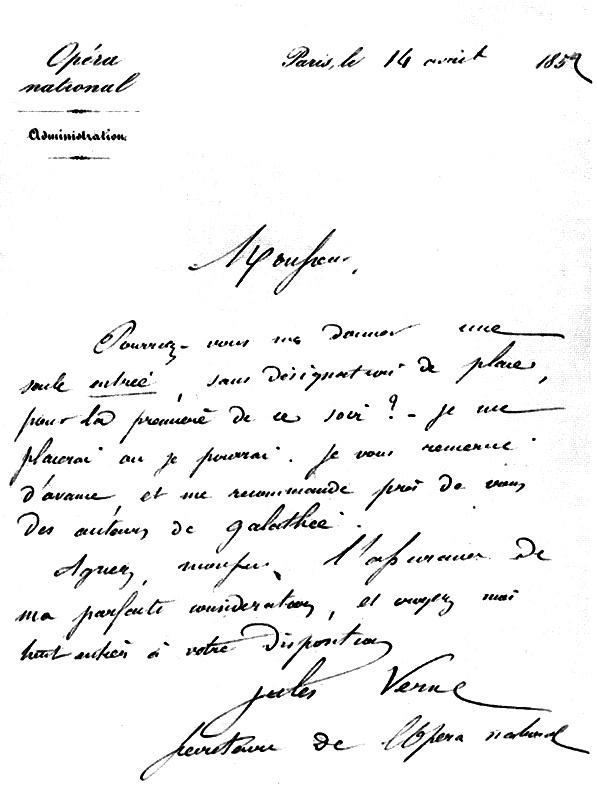 Opéra
national
Administration.
Paris, le 14 avril 1852
Monsieur,
Pourriez-vous me donner une
seule entrée, sans désignation de place,
pour la première de ce soir ? - je me
placerai où je pourrai. Je vous remercie
d'avance et me recommande près de vous
des auteurs de Galathée.
Agréez, monsieur, l'assurance de
ma parfaite considération, et croyez moi
tout entier à votre disposition
Jules Verne
Secrétaire de l'Opéra national